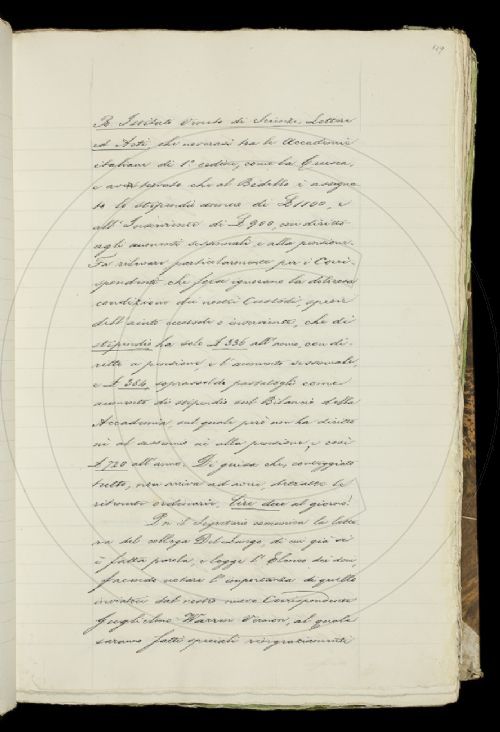 49
R. Istituto Veneto di Scienze, Lettere
ed Arti, che novera tra le Accademie
italiane di 1° ordine, come la Crusca,
e che al Bidello è assegna
to lo stipendio annuo di £ 1100, e
all'Inserviente di £ 900, con diritto
agli aumenti sessennali e alla pensione.
Fa rilevare particolarmente per i Corri-
spondenti che forse ignorano la
condizione dei nostri Custodi, specie
dell' e inserviente, che di
stipendio ha sole £ 336 all'anno, con di-
ritto a pensione, e l'aumento sessennale,
e £ 384, come
aumento di stipendio sul Bilancio della
Accademia, sul quale però non ha diritto
nè al sessennio nè alla pensione, e così
£ 720 all'anno. Di guisa che, conteggiato
tutto, non arriva ad avere, detratte le
ritenute ordinarie, lire due al giorno!
Il Segretario comunica la lette
ra del collega Del Lungo, di cui già si
è fatta parola, e legge l'Elenco dei doni,
facendo notare l'importanza di quello
inviato dal nostro nuovo Corrispondente
Guglielmo Warren Vernon, al quale
saranno fatti speciali ringraziamenti